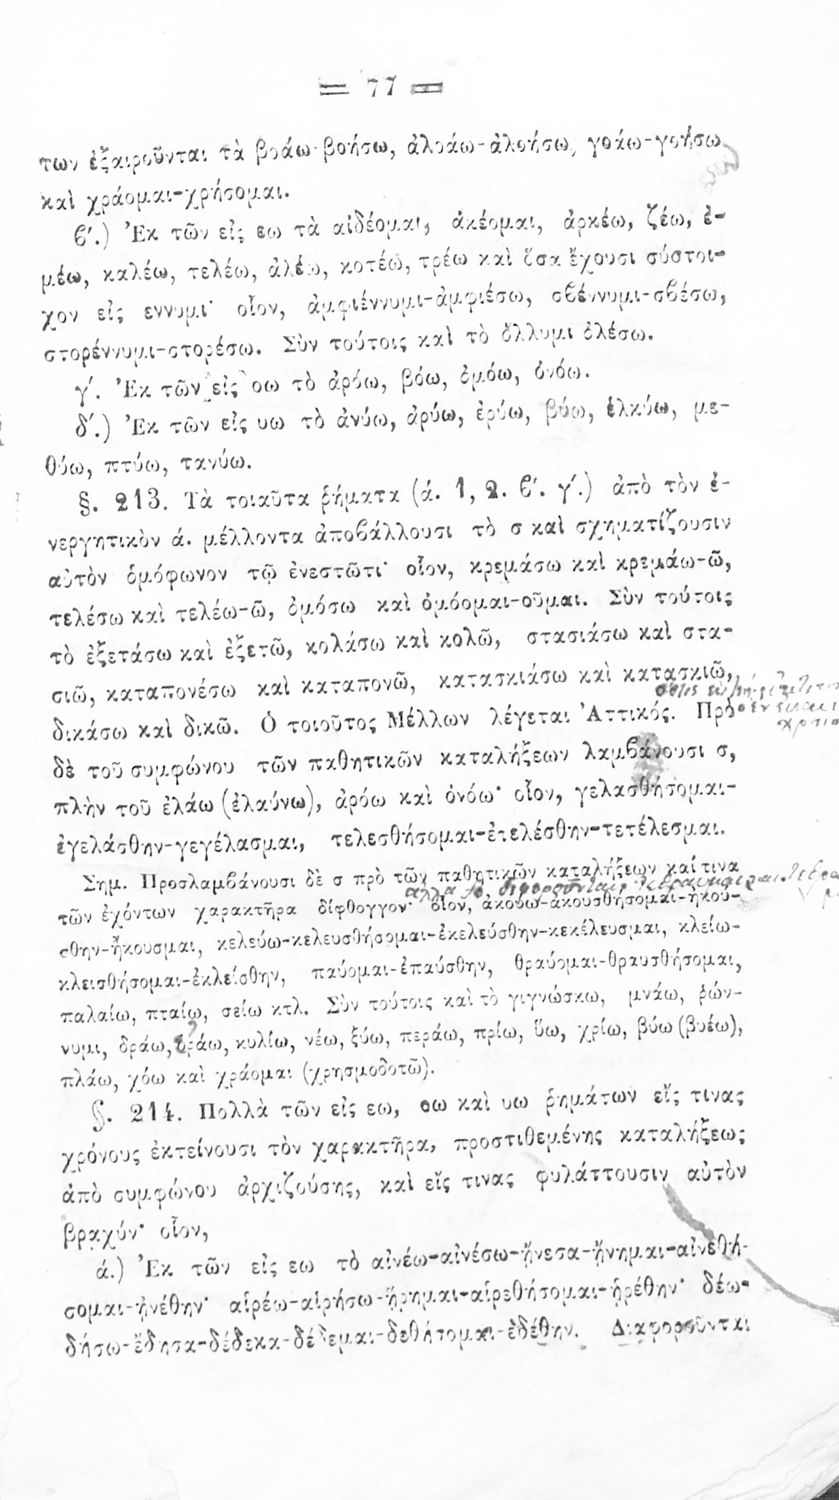 = 77 =
των ἐξαιροῦνται τὰ βοάω-βοήσω, ἀλοάω-ἀλοήσω, γοάω-γοήσω
καὶ χράομαι-χρήσομαι.
β΄.) Ἐκ τῶν εἰς εω τὰ αἰδέομαι, ἀκέομαι, ἀρκέω, ζέω, ἐ-
μέω, καλέω, τελέω, ἀλέω, κοτέω, τρέω καὶ ὅσα ἔχουσι σύστοι-
χον εἰς εννυμι· οἷον, ἀμφιέννυμι-ἀμφιέσω, σβέννυμι-σβέσω,
στορέννυμι-στορέσω. Σὺν τούτοις καὶ τὸ ὄλλυμι ὀλέσω.
γ΄. Ἐκ τῶν εἰς οω τὸ ἀρόω, βόω, ὀμόω, ὀνόω.
δ΄.) Ἐκ τῶν εἰς υω τὸ ἀνύω, ἀρύω, ἐρύω, βύω, ἑλκύω, με-
θύω, πτύω, τανύω.
§. 213. Τὰ τοιαῦτα ῥήματα (ά. 1, 2. β΄. γ΄.) ἀπὸ τὸν ἐ-
νεργητικὸν ά. μέλλοντα ἀποβάλλουσι τὸ σ καὶ σχηματίζουσιν
αὐτὸν ὁμόφωνον τῷ ἐνεστῶτι· οἷον, κρεμάσω καὶ κρεμάω-ῶ,
τελέσω καὶ τελέω-ῶ, ὀμόσω καὶ ὀμόομαι-οῦμαι. Σὺν τούτοις
τὸ ἐξετάσω καὶ ἐξετῶ, κολάσω καὶ κολῶ, στασιάσω καὶ στα-
σιῶ, καταπονέσω καὶ καταπονῶ, κατασκιάσω καὶ κατασκιῶ,
δικάσω καὶ δικῶ. Ὁ τοιοῦτος Μέλλων λέγεται Ἀττικός. Πρὸ
δὲ τοῦ συμφώνου τῶν παθητικῶν καταλήξεων λαμβάνουσι σ,
πλὴν τοῦ ἐλάω (ἐλαύνω), ἀρόω καὶ ὀνόω· οἷον, γελασθήσομαι-
ἐγελάσθην-γεγέλασμαι, τελεσθήσομαι-ἐτελέσθην-τετέλεσμαι.
Σημ. Προσλαμβάνουσι δὲ σ πρὸ τῶν παθητικῶν καταλήξεων καί τινα
τῶν ἐχόντων χαρακτῆρα δίφθογγον· οἷον, ἀκούω-ἀκουσθήσομαι-ἠκού-
σθην-ἤκουσμαι, κελεύω-κελευσθήσομαι-ἐκελεύσθην-κεκέλευσμαι, κλείω-
κλεισθήσομαι-ἐκλείσθην, παύομαι-ἐπαύσθην, θραύομαι-θραυσθήσομαι,
παλαίω, πταίω, σείω κτλ. Σὺν τούτοις καὶ τὸ γιγνώσκω, μνάω, ῥών-
νυμι, δράω, κυλίω, νέω, ξύω, περάω, πρίω, ὕω, χρίω, βύω (βυέω),
πλάω, χόω καὶ χράομαι (χρησμοδοτῶ).
§. 214. Πολλὰ τῶν εἰς εω, οω καὶ υω ῥημάτων εἴς τινας
χρόνους ἐκτείνουσι τὸν χαρακτῆρα, προστιθεμένης καταλήξεως
ἀπὸ συμφώνου ἀρχιζούσης, καὶ εἴς τινας φυλάττουσιν αὐτὸν
βραχύν· οἷον,
ά.) Ἐκ τῶν εἰς εω τὸ αἰνέω-αἰνέσω-ᾔνεσα-ᾔνημαι-αἰνεθή-
σομαι-ᾐνέθην· αἱρέω-αἱρήσω-ᾕρημαι-αἱρεθήσομαι-ᾑρέθην· δέω-
δήσω-ἔδησα-δέδεκα-δέδεμαι-δεθήσομαι-ἐδέθην. Διαφοροῦνται